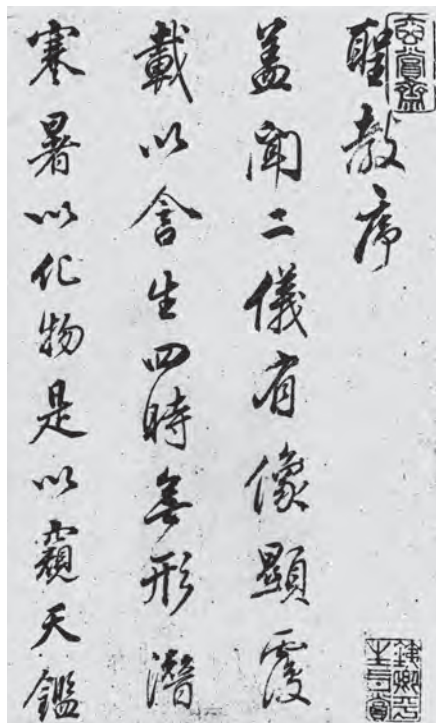 聖教序
蓋聞二儀有像顯覆
載以含生四時無形潛
寒暑以化物是以窺天鑑
奕賞齋